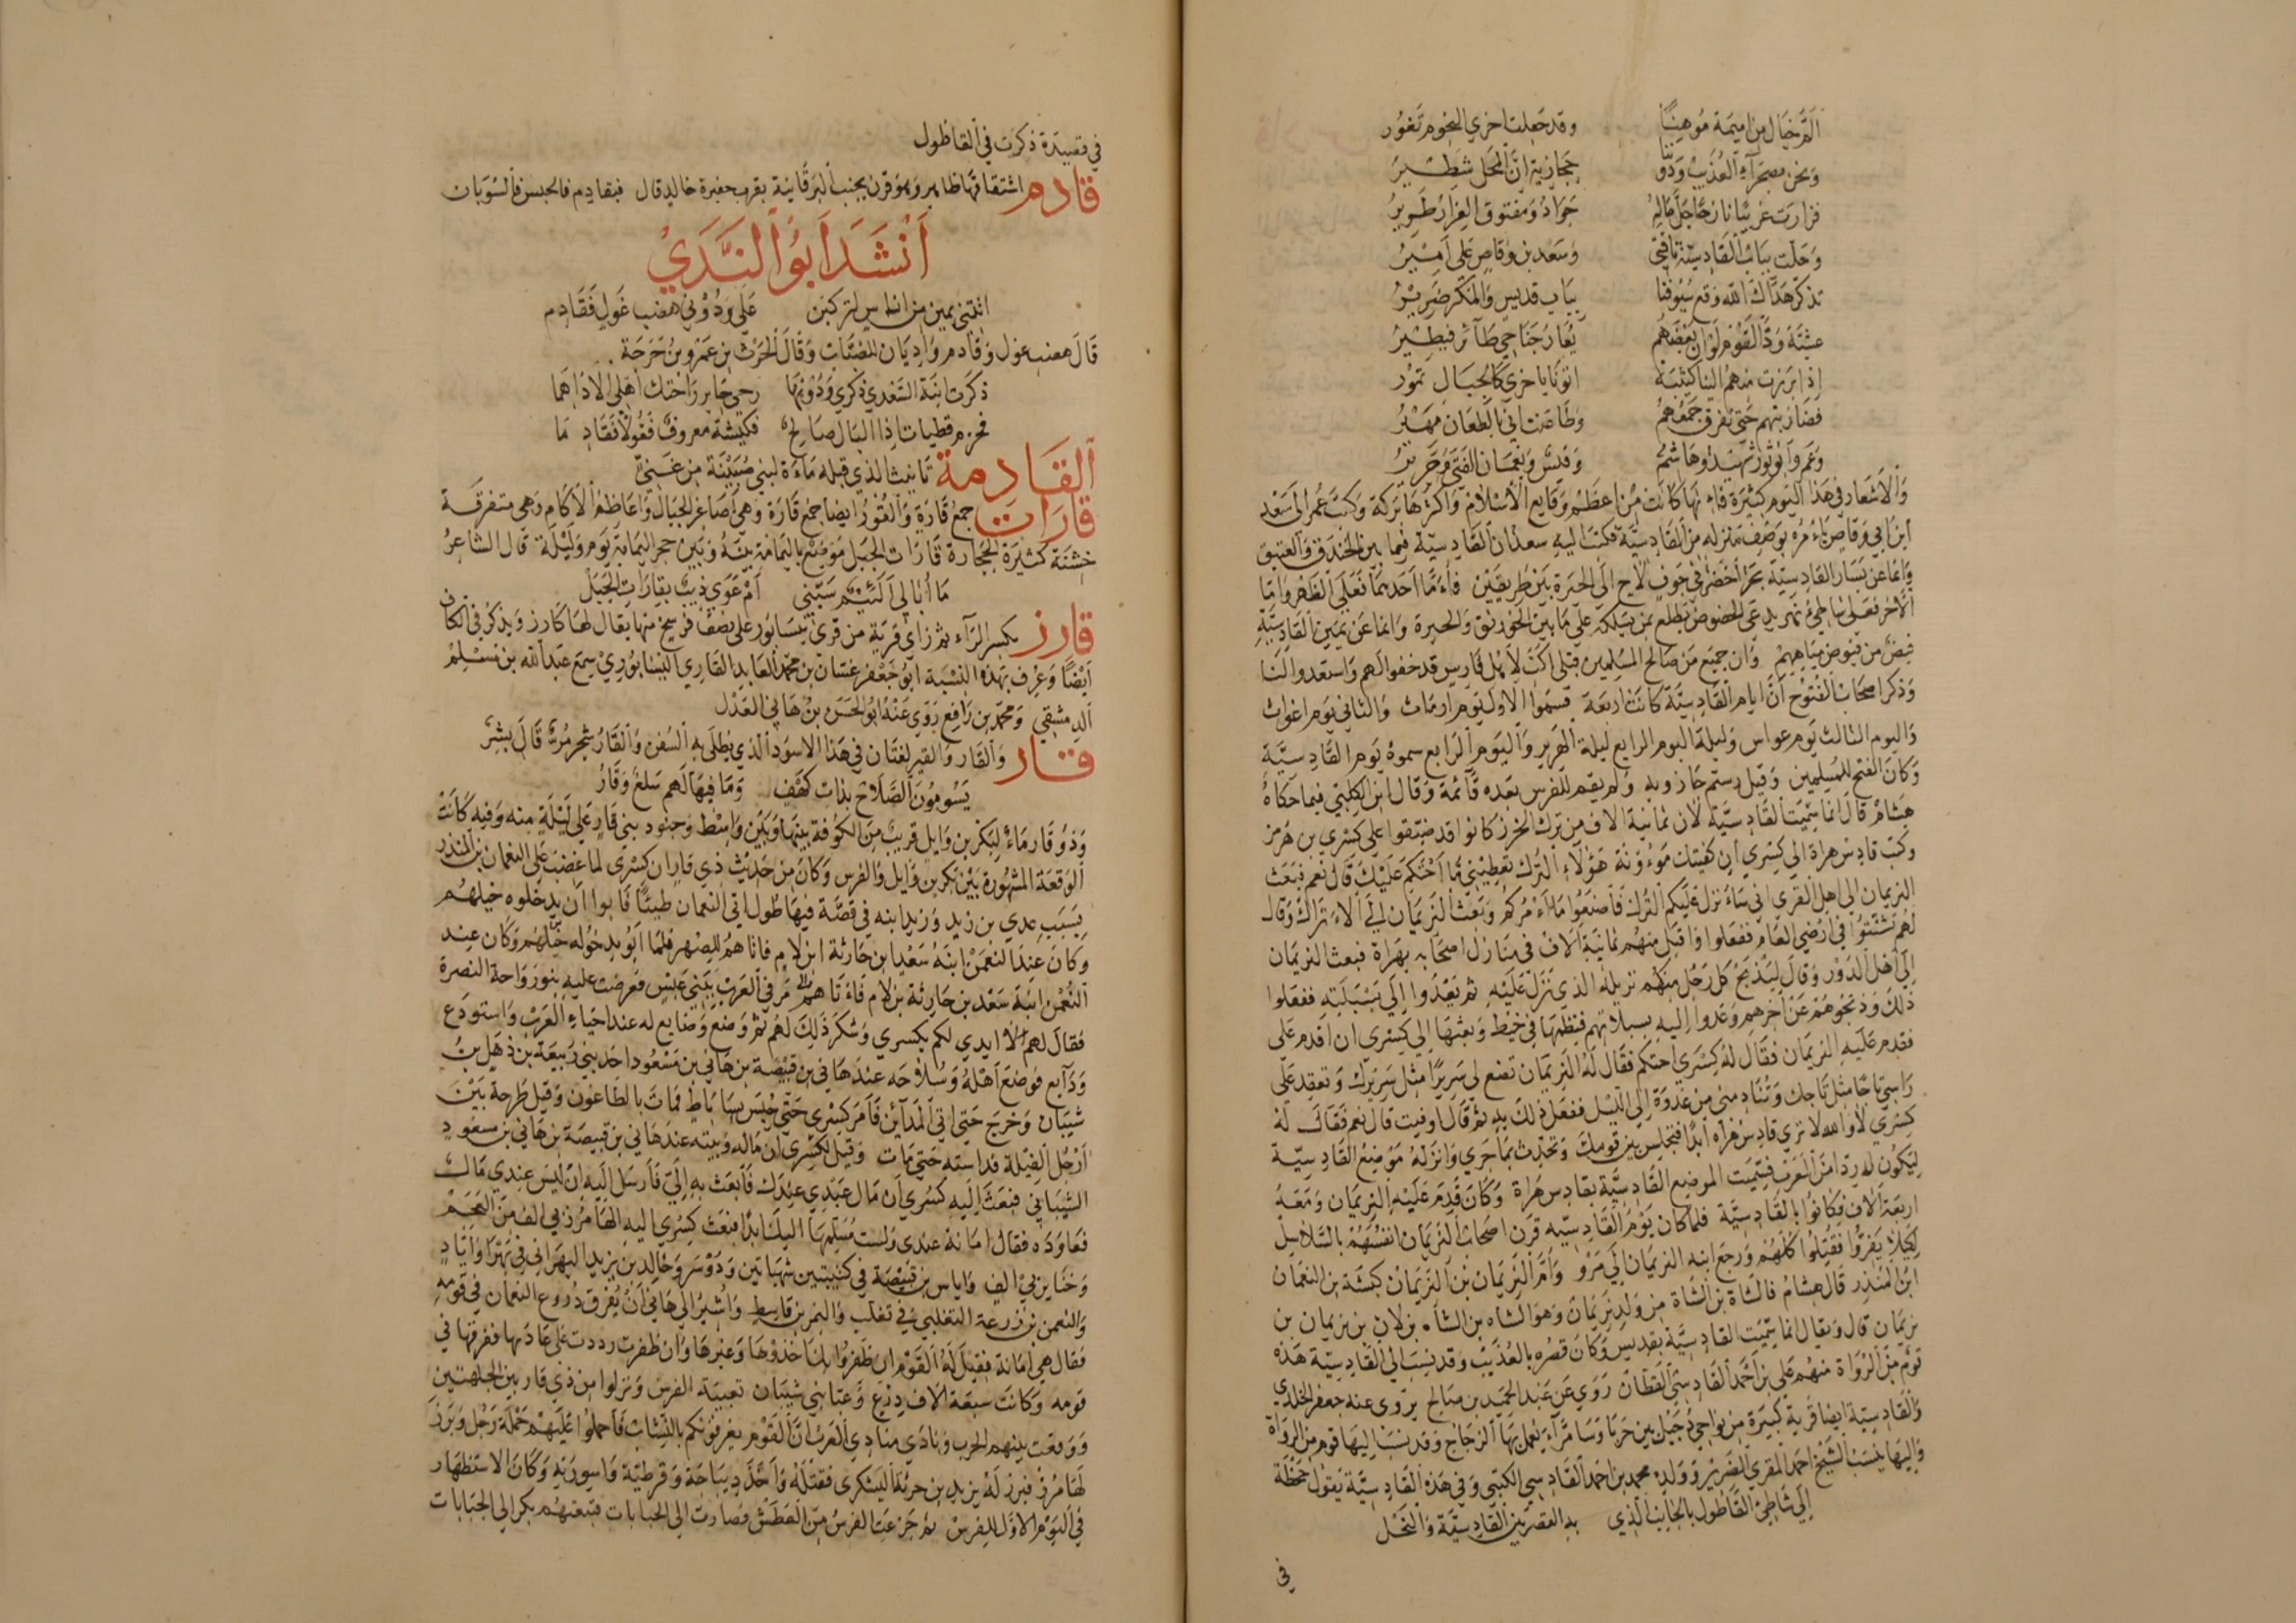 ألمّ خيال من اميمة موهنا وقد جعلت اخري النجوم تغور
ونحن بصحرآء العذيب ودوننا حجازية ان المحل شطير
فزارت غريبا نازحا جل ماله جواد ومفتوق الغرار طرير
وحلت بباب القادسية ناقتي وسعد بن وقاص علي امير
تذكر هداك الله وقع سيوفنا بباب قديس والمكر ضرير
عشيّة ودّ القوم لو ان بعضهم يعار جناحي طآئر فيطير
إذا برزت منهم الينا كتيبة اتونا باخري كالجبال تمور
فضاربتهم حتي تفرق جمعهم وطاعنت اني بالطعان مهير
وعمرو ابو ثور شهيد وهاشم وقيس ونعمان الفتي وجرير
والاشعار في هذا اليوم كثيرة فانها كانت من اعظم وقايع الاسلام واكثرها بركة وكتب عمر الى سعد
ابن ابي وقاص يأمره بوصف منزله من القادسيّة فكتب اليه سعد ان القادسيّة فيما بين الخندق والعتيق
وانما عن يسار القادسيّة بحر أخضر في جوف لاح الى الحيرة بين طريقين فأمّا احدهما فعلي الظهر وامّا
الآخر فعلي شاطيء نهر يدعي الخصوص يطلع بمن يسلكه علي ما بين الخورنق والحيرة وانما عن يمين القادسيّة
فيض من فيوض مياههم وان جميع من صالح المسلمين قبلي الب لاهل فارس قد خفوا لهم واستعدوا لنا
وذكر اصحاب الفتوح أنّ ايام القادسيّة كانت أربعة قسموا الاول يوم ارماث والثاني يوم اغواث
واليوم الثالث يوم عواس وليلة اليوم الرابع ليلة الهرير واليوم الرابع سموه يوم القادسيّة
وكان الفتح للمسلمين وقيل رستم جازويه ولم يقم للفرس بعده قآئمة وقال ابن الكلبي فيما حكاه
هشام قال انما سمّيت القادسيّة لان ثمانية الاف من ترك الخزر كانوا قد ضيّقوا علي كسري بن هرمز
وكتب قادس هراة الي كسري ان كفيتك مؤونة هؤلاء الترك تعطيني ما أحتكم عليك قال نعم فبعث
النريمان الي اهل القري اني سأنزل عليكم الترك فاصنعوا ما آمركم وبعث النريمان الي الاتراك وقال
لهم تشتّوا في ارضي العام ففعلوا واقبل منهم ثمانية الاف في منازل اصحابه بهراة فبعث النريمان
إلى أهل الدور وقال ليذبح كل رجل منكم نزيله الذي نزل عليه ثم يغدوا الي بسبلته ففعلوا
ذلك وذبحوهم عن آخرهم وغدوا إليه بسبلاتهم فنظمها في خيط وبعثها الي كسري ان اقدم علي
فقدم عليه النريمان فقال له كسري احتكم فقال له النريمان تضع لي سريرا مثل سريرك وتعقد علي
راسي تاجا مثل تاجك وتنادمني من غدوة إلي الليل ففعل ذلك به ثم قال اوفيت قال نعم فقال له
كسري لا والله لا تري قادس هراه ابدا فتجلس بين قومك وتحدث بما جري وانزله موضع القادسيّة
ليكون له ردا من العرب فسمّيت الموضع القادسيّة بقادس هراة وكان قدم عليه النريمان ومعه
اربعة الاف فكانوا بالقادسيّة فلما كان يوم القادسيّه قرن اصحاب النريمان انفسهم بالسّلاسل
لكيلا يفرّوا فقتلوا كلّهم ورجع ابنه النريمان الي مرو وأمّ النريمان بن النريمان كبشة بنت النعمان
ابن المنذر قال هشام فالشاة بن الشاة من ولد نريمان وهو الشاه بن الشاه بن لان بن نريمان بن
نريمان قال ويقال انما سمّيت القادسيّة بقديس وكان قصره بالعذيب وقد نسب الي القادسيّة هذه
قوم من الرواة منهم علي بن احمد القادسيّ القطان روي عن عبد الحميد بن صالح يروى عنه جعفر الخلدي
والقادسيّة ايضا قرية كبيرة من نواحي دجيل بين حربا وسامرّآء يعمل بها الزجاج وقد نسب اليها قوم من الرواة
واليها ينسب الشيخ احمد المقري الضرير وولده محمد بن احمد القادسي الكتبي وفي هذه القادسيّة يقول جحظة
إلي شاطئ القاطول بالجانب الذي به القصر بين القادسيّة والنخل
في
في قصيدة ذكرت في القاطول
قادم اشتقاقها ظاهر وهو قرن بجنب البرقانية بقرب حفيرة خالد قال فبقادم فالحبس فالسّوبان
أنشد أبو الندي
اتتني يمين من اناس لتركبن علي ودوني هضب غول فقادم
قال هضب غول وقادم واديان للضباب وقال الحرث بن عمرو بن حرجة
ذكرت ابنة السعدي ذكري ودونها رحي جابر واحتل اهلي الاداهما
فحزم قطيات إذا البال صالح فكبشة معروف فغولا فقادما
القادمة تانيث الذي قبله ماءة لبني ضبينة من غني
قارات جمع قارة والقور ايضا جمع قارة وهي أصاغر الجبال واعاظم الآكام وهي متفرقة
خشنة كثيرة الحجارة قارات الجبل موضع باليمامة بينه وبين حجر اليمامة يوم وليلة قال الشاعر
ما أبالي ألئيم سبّني أم عوي ذيب بقارات الجبل
قارز بكسر الرآء ثم زاي قرية من قري نيسابور علي نصف فرسخ منها يقال لها كارز ويذكر في الكاف
أيضا وعرف بهذه النسبة ابو جعفر غسان بن محمد العابد القارزي النيسابوري سمع عبد الله بن مسلم
الدمشقي ومحمد بن رافع روي عنه ابو الحسن بن هاني العدل
قار والقار والقير لغتان في هذا الاسود الذي يطلى به السفن والقار شجر مرّ قال بشر
يسومون الصّلاح بذات كهف وما فيها لهم سلع وقار
وذو قار ماء لبكر بن وايل قريب من الكوفة بينها وبين واسط وحنو ذي قار علي ليلة منه وفيه كانت
الوقعة المشهورة بين بكر بن وايل والفرس وكان من حديث ذي قار ان كسرى لما غضب علي النعمان بن المنذر
بسبب عدي بن زيد وزيد ابنه في قصّة فيها طول اتي النعمان طيئا فابوا أن يدخلوه جبلهم
وكان عند النعمن ابنه سعد ابن حارثة ابن لام فاتاهم للصهر فلما ابو بدخوله جبلهم وكان عند
النعمن ابنة سعد بن حارثة بن لام فأتاهم مر في العرب ببني عبس فعرضت عليه بنو رواحة النصرة
فقال لهم لا ايدي لكم بكسري وشكر ذلك لهم ثم وضع وضايع له عند احياء العرب واستودع
ودآيع فوضع أهله وسلاحه عند هاني بن قبيصة بن هاني بن مسعود احد بني ربيعة بن ذهل بن
شيبان وخرج حتي اتي المدآئن فأمر كسري حتي حبس بساباط فمات بالطاعون وقيل طرحه بين
أرجل الفيلة فداسته حتي مات وقيل لكسري ان ماله وبيته عند هاني بن قبيصة بن هاني بن مسعود
الشيباني فبعث اليه كسري أن مال عبدي عندك فابعث به إليّ فأرسل اليه ان ليس عندي مال
فعاوده فقال امانة عندي ولست مسلمها اليك ابدا فبعث كسري اليه الهامرز في الف من العجم
وخنابزين في الف واياس بن قبيصة في كتيبتين شهباتين ودوسر وخالد بن يزيد البهراني في بهرا واياد
والنعمن بن زرعة التغلبي في تغلب والنمر بن قاسط واشير الي هاني أن يفرق دروع النعمان في قومه
فقال هي امانة فقيل له القوم ان ظفروا بك اخذوها وغيرها وان ظفرت رددت علي عادتها ففرقها في
قومه وكانت سبعة الاف درع وعبا بني شيبان تعبية الفرس ونزلوا من ذي قار بين الجلهتين
ووقعت بينهم الحرب ونادي منادي العرب ان القوم يغرقونكم بالنشاب فاحملوا عليهم حملة رجل وبرز
لهامرز فبرز له يزيد بن حرثة اليشكري فقتله واخذ ديباجة وقرطيّة واسوريّه وكان الاستظهار
في اليوم الاول للفرس ثم جزعت الفرس من العطش فصارت الى الجبابات فتبعتهم بكر الي الجبابات